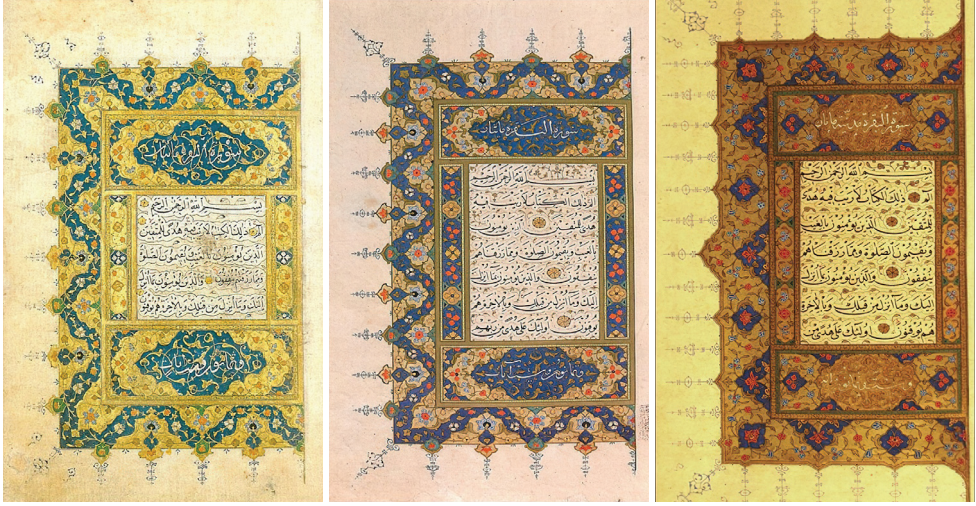 سورة البقرة مائتان
بسم الله الرحمن الرحيم
الم ذلك الكتاب لا ريب فيه هدى للمتقين
الذين يؤمنون بالغيب ويقيمون الصلوة
ومما رزقناهم ينفقون والذين يؤمنون بما انزل
اليك وما انزل من قبلك وبالاخرة هم يوقنون
وثمانون وست ايات
سورة البقرة مائتان
بسم الله الرحمن الرحيم
الم ذلك الكتاب لا ريب فيه
هدى للمتقين الذين يؤمنون
بالغيب ويقيمون الصلوة ومما رزقناهم
ينفقون والذين يؤمنون بما انزل
اليك وما انزل من قبلك وبالاخرة هم
يوقنون اولئك على هدى من ربهم
سورة البقرة
بسم الله الرحمن الرحيم
الم ذلك الكتاب لا ريب فيه هدى
للمتقين الذين يؤمنون بالغيب
ويقيمون الصلوة ومما رزقناهم
ينفقون والذين يؤمنون بما انزل
اليك وما انزل من قبلك وبالاخرة
هم يوقنون اولئك على هدى من